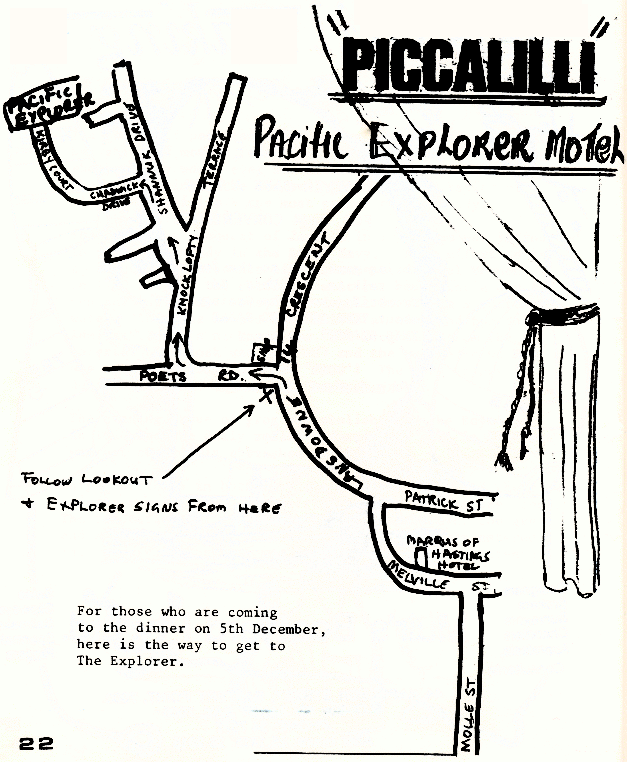 " PICCALILLI "
PACIFIC EXPLORER MOTEL
PACIFIC
EXPLORER
KIRBY COURT
CHADWICK
DRIVE
SHAMROCK DRIVE
TERRACE
KNOCKLOFTY
CRESCENT
POETS RD.
LANSDOWNE
FOLLOW LOOKOUT
+ EXPLORER SIGNS FROM HERE
PATRICK ST
MARQUIS OF
HASTINGS
HOTEL
MELVILLE ST.
MOLLE ST
For those who are coming
to the dinner on 5th December,
here is the way to get to
The Explorer.
22